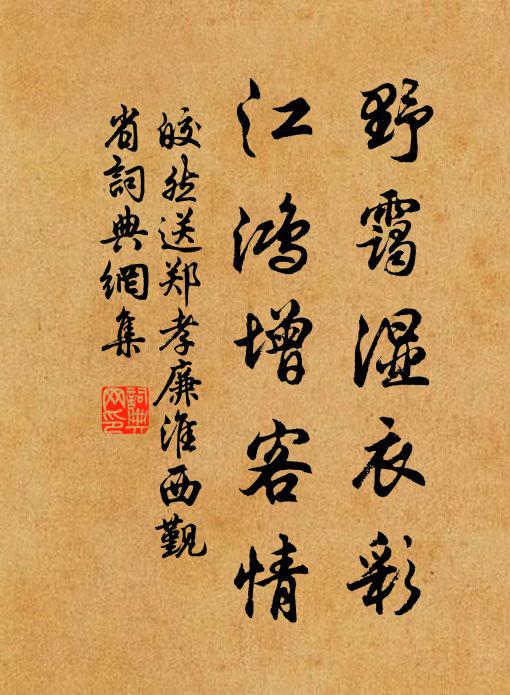 野霭湿衣彩
江鸿增客情
皎然送郑孝廉淮西觐
省詞典網集
詞典
网印